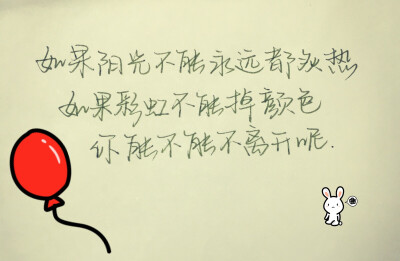 如果阳光不能永远都炙热
如果彩虹不能掉颜色
你能不能不离开呢.